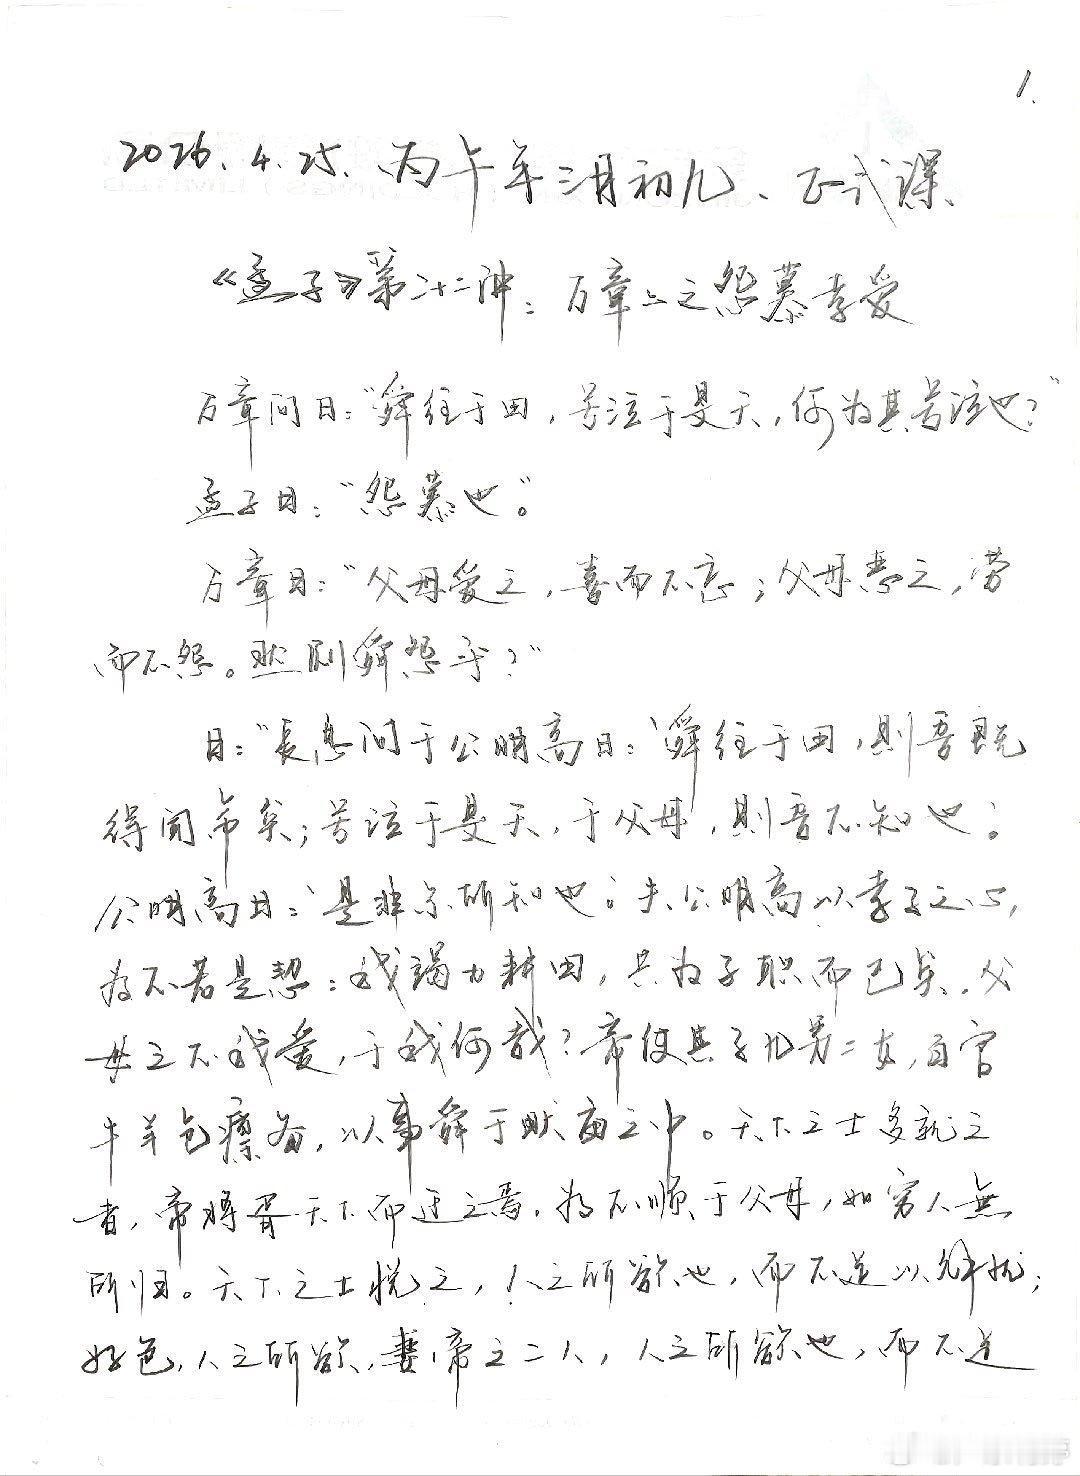 1.
2026.4.25.丙午年三月初九、正式课、
《孟子》第二十二讲：万章上之怨慕孝爱
万章问曰："舜往于田，号泣于旻天，何为其号泣也？"
孟子曰："怨慕也"。
万章曰："父母爱之，喜而不忘；父母恶之，劳
而不怨。然则舜怨乎？"
曰："長息问于公明高曰：'舜往于田，則吾既
得闻命矣；号泣于旻天，于父母，則吾不知也'。
公明高曰：'是非尔所知也'。夫公明高以孝子之心，
为不若是恝：我竭力耕田，共为子职而已矣，父
母之不我爱，于我何哉？帝使其子九男二女，百官
牛羊仓廪备，以事舜于畎亩之中。天下之士多就之
者，帝将胥天下而迁之焉，为不順于父母，如穷人無
所归。天下之士悦之，人之所欲也，而不足以解忧；
好色，人之所欲，妻帝之二人，人之所欲也，而不足